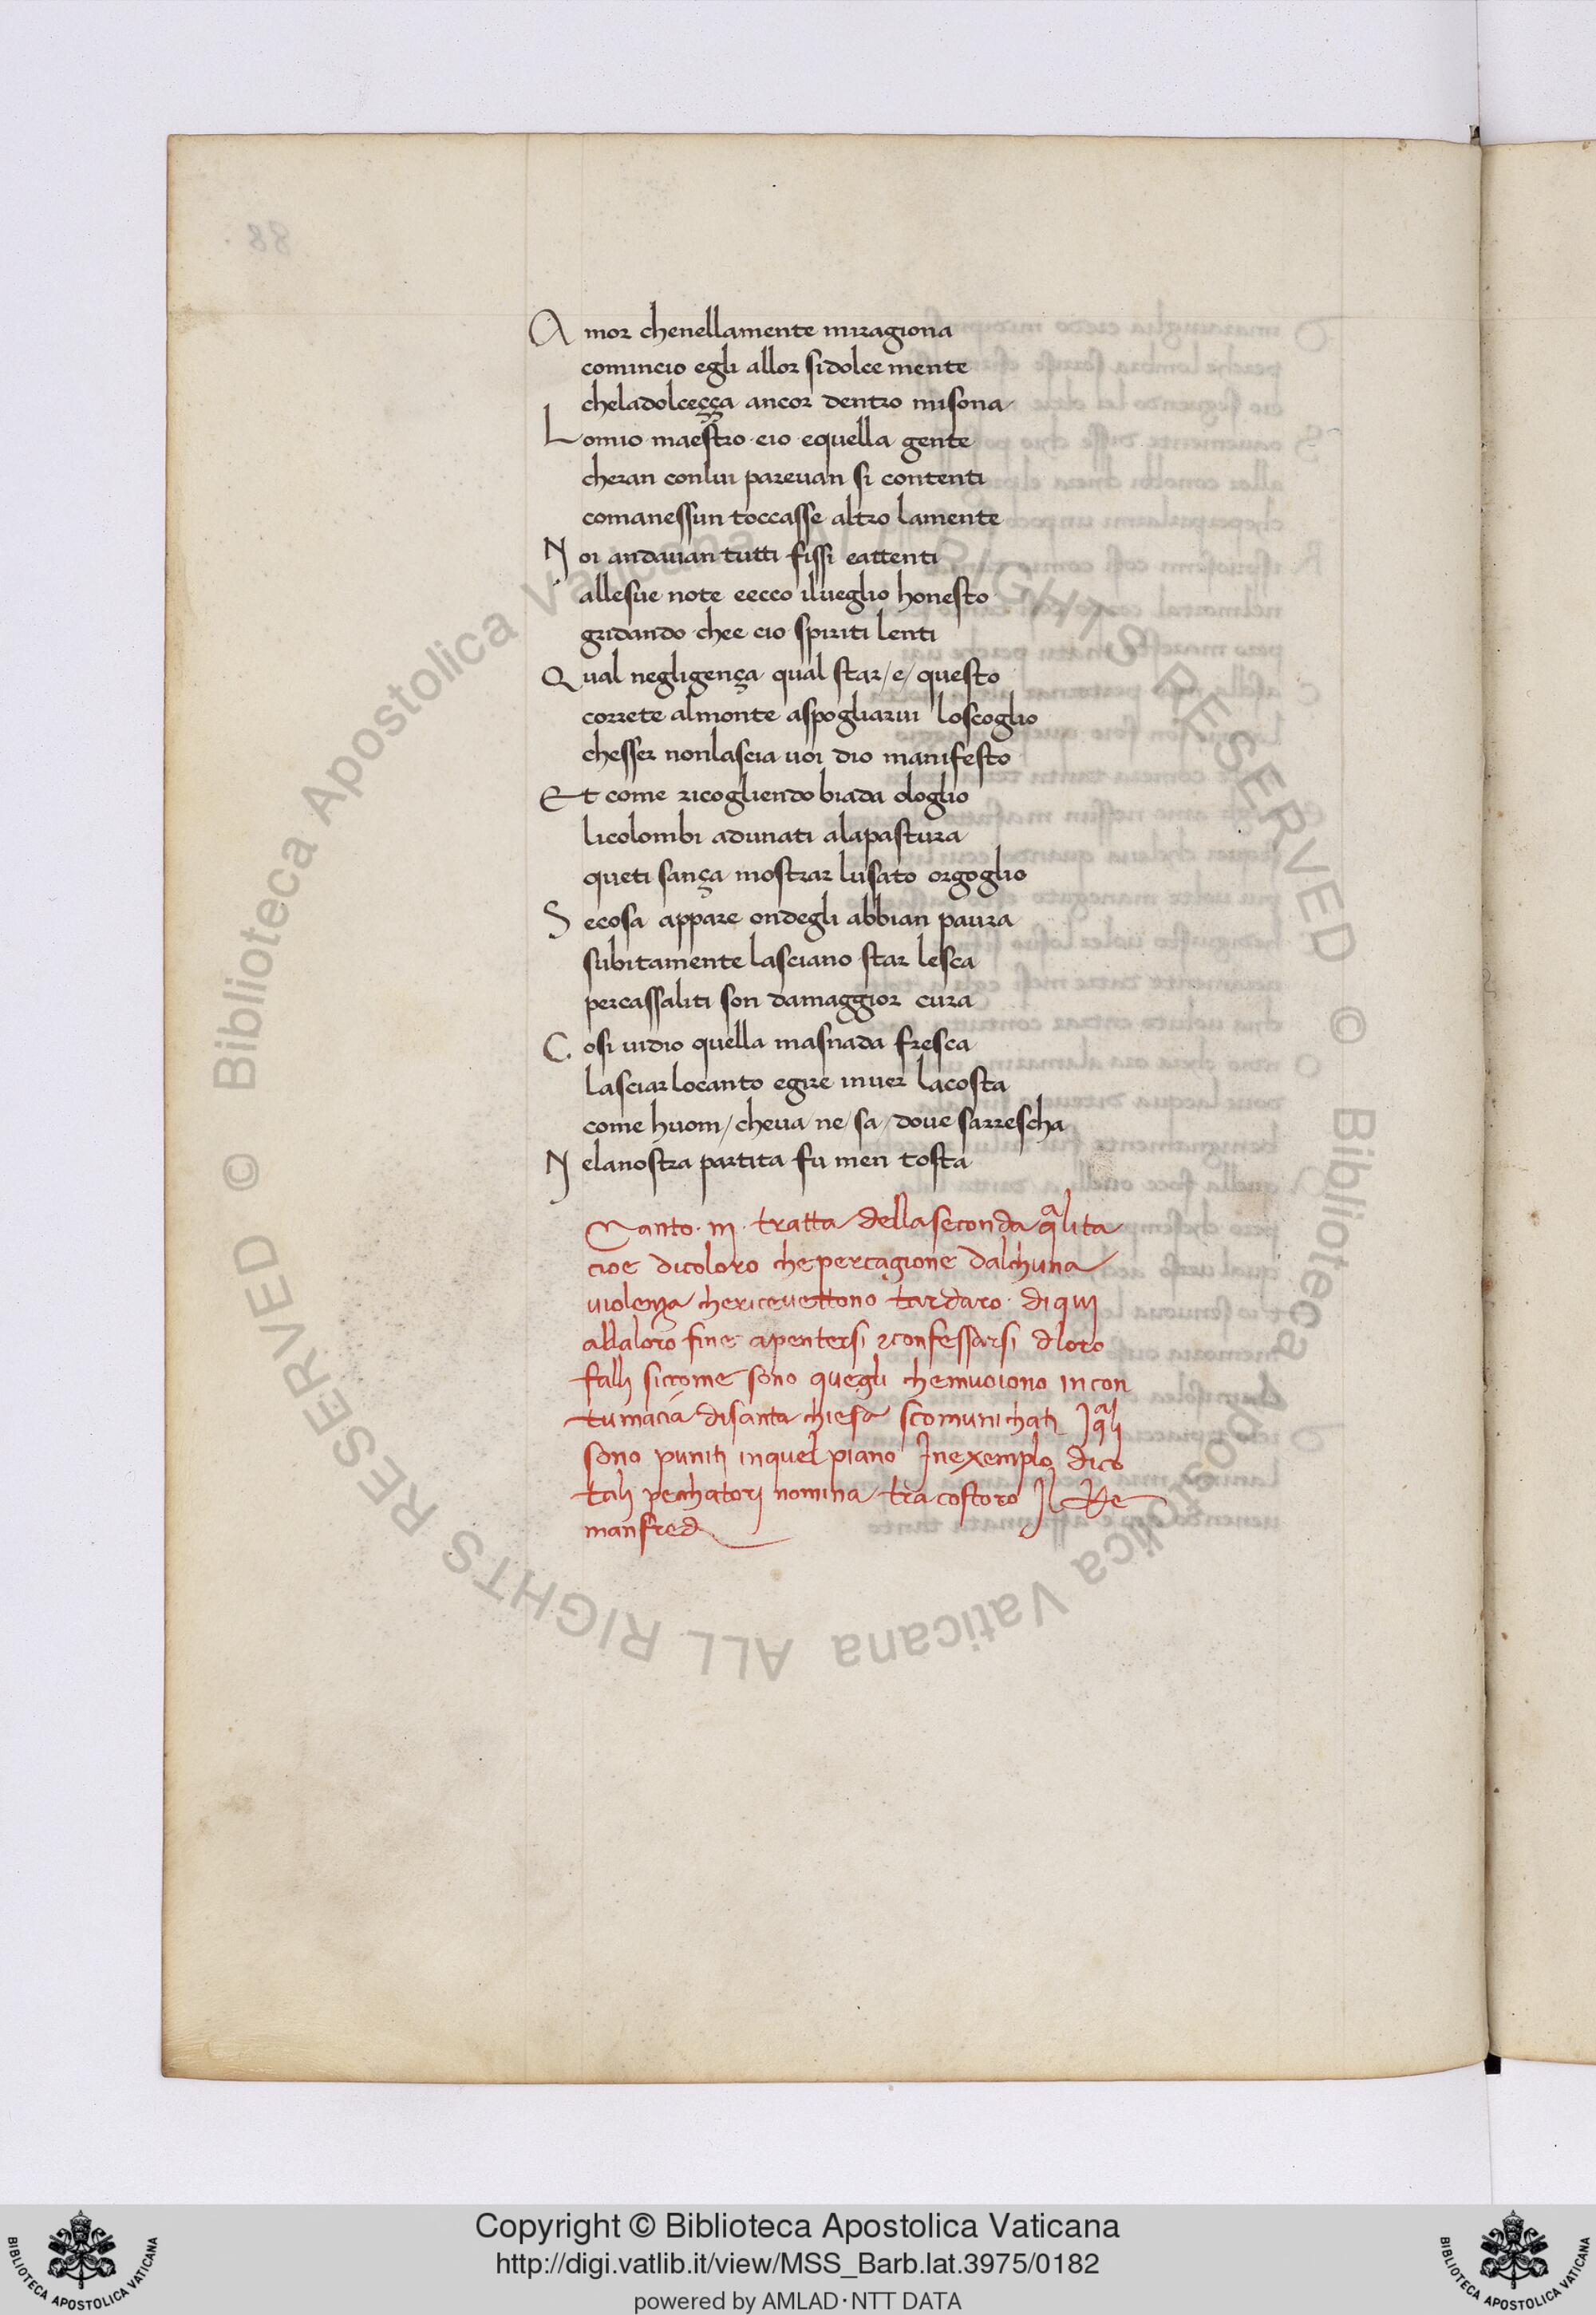 A mor chenellamente miragiona
comincio egli allor sidolce mente
cheladolceçça ancor dentro misona
L omio maestro eio equella gente
cheran conlui parevan si contenti
comanessun toccasse altro lamente
N oi andavan tutti fissi eattenti
allesue note eecco ilveglio honesto
gridando chee cio spiriti lenti
Q ual negligença qual star/e/questo
correte almonte aspogliarvi loscoglio
chesser nonlascia voi dio manifesto
E t come ricogliendo biada ologlio
licolombi adunati alapastura
queti sança mostrar lusato orgoglio
S ecosa appare ondegli abbian paura
subitamente lasciano star lesca
percassaliti son damaggior cura
C osi vidio quella masnada fresca
lasciar locanto egire inver lacosta
come huom/cheva ne/sa/dove sarrescha
N elanostra partita fu men tosta
Canto . iij . tratta dellaseconda qalita
cioe dicoloro chepercagione dalchuna
violenza chericevettono tardaro . di quj
allaloro fine apentersi ⁊confessarsi dloro
fallj siccome sono quegli chemuoiono incon
tumacia disanta chiesa scomunichatj Jqalj
sono punitj inquel piano Jnexemplo dico
talj pecchatorj nomina tra costoro Jl Re
manfred
88
© Biblioteca Apostolica Vaticana ALL RIGHTS RESERVED © Biblioteca Apostolica Vaticana ALL RIGHTS RESERVED
Copyright © Biblioteca Apostolica Vaticana
http://digi.vatlib.it/view/MSS_Barb.lat.3975/0182
powered by AMLAD·NTT DATA
BIBLIOTECA APOSTOLICA VATICANA
BIBLIOTECA APOSTOLICA VATICANA